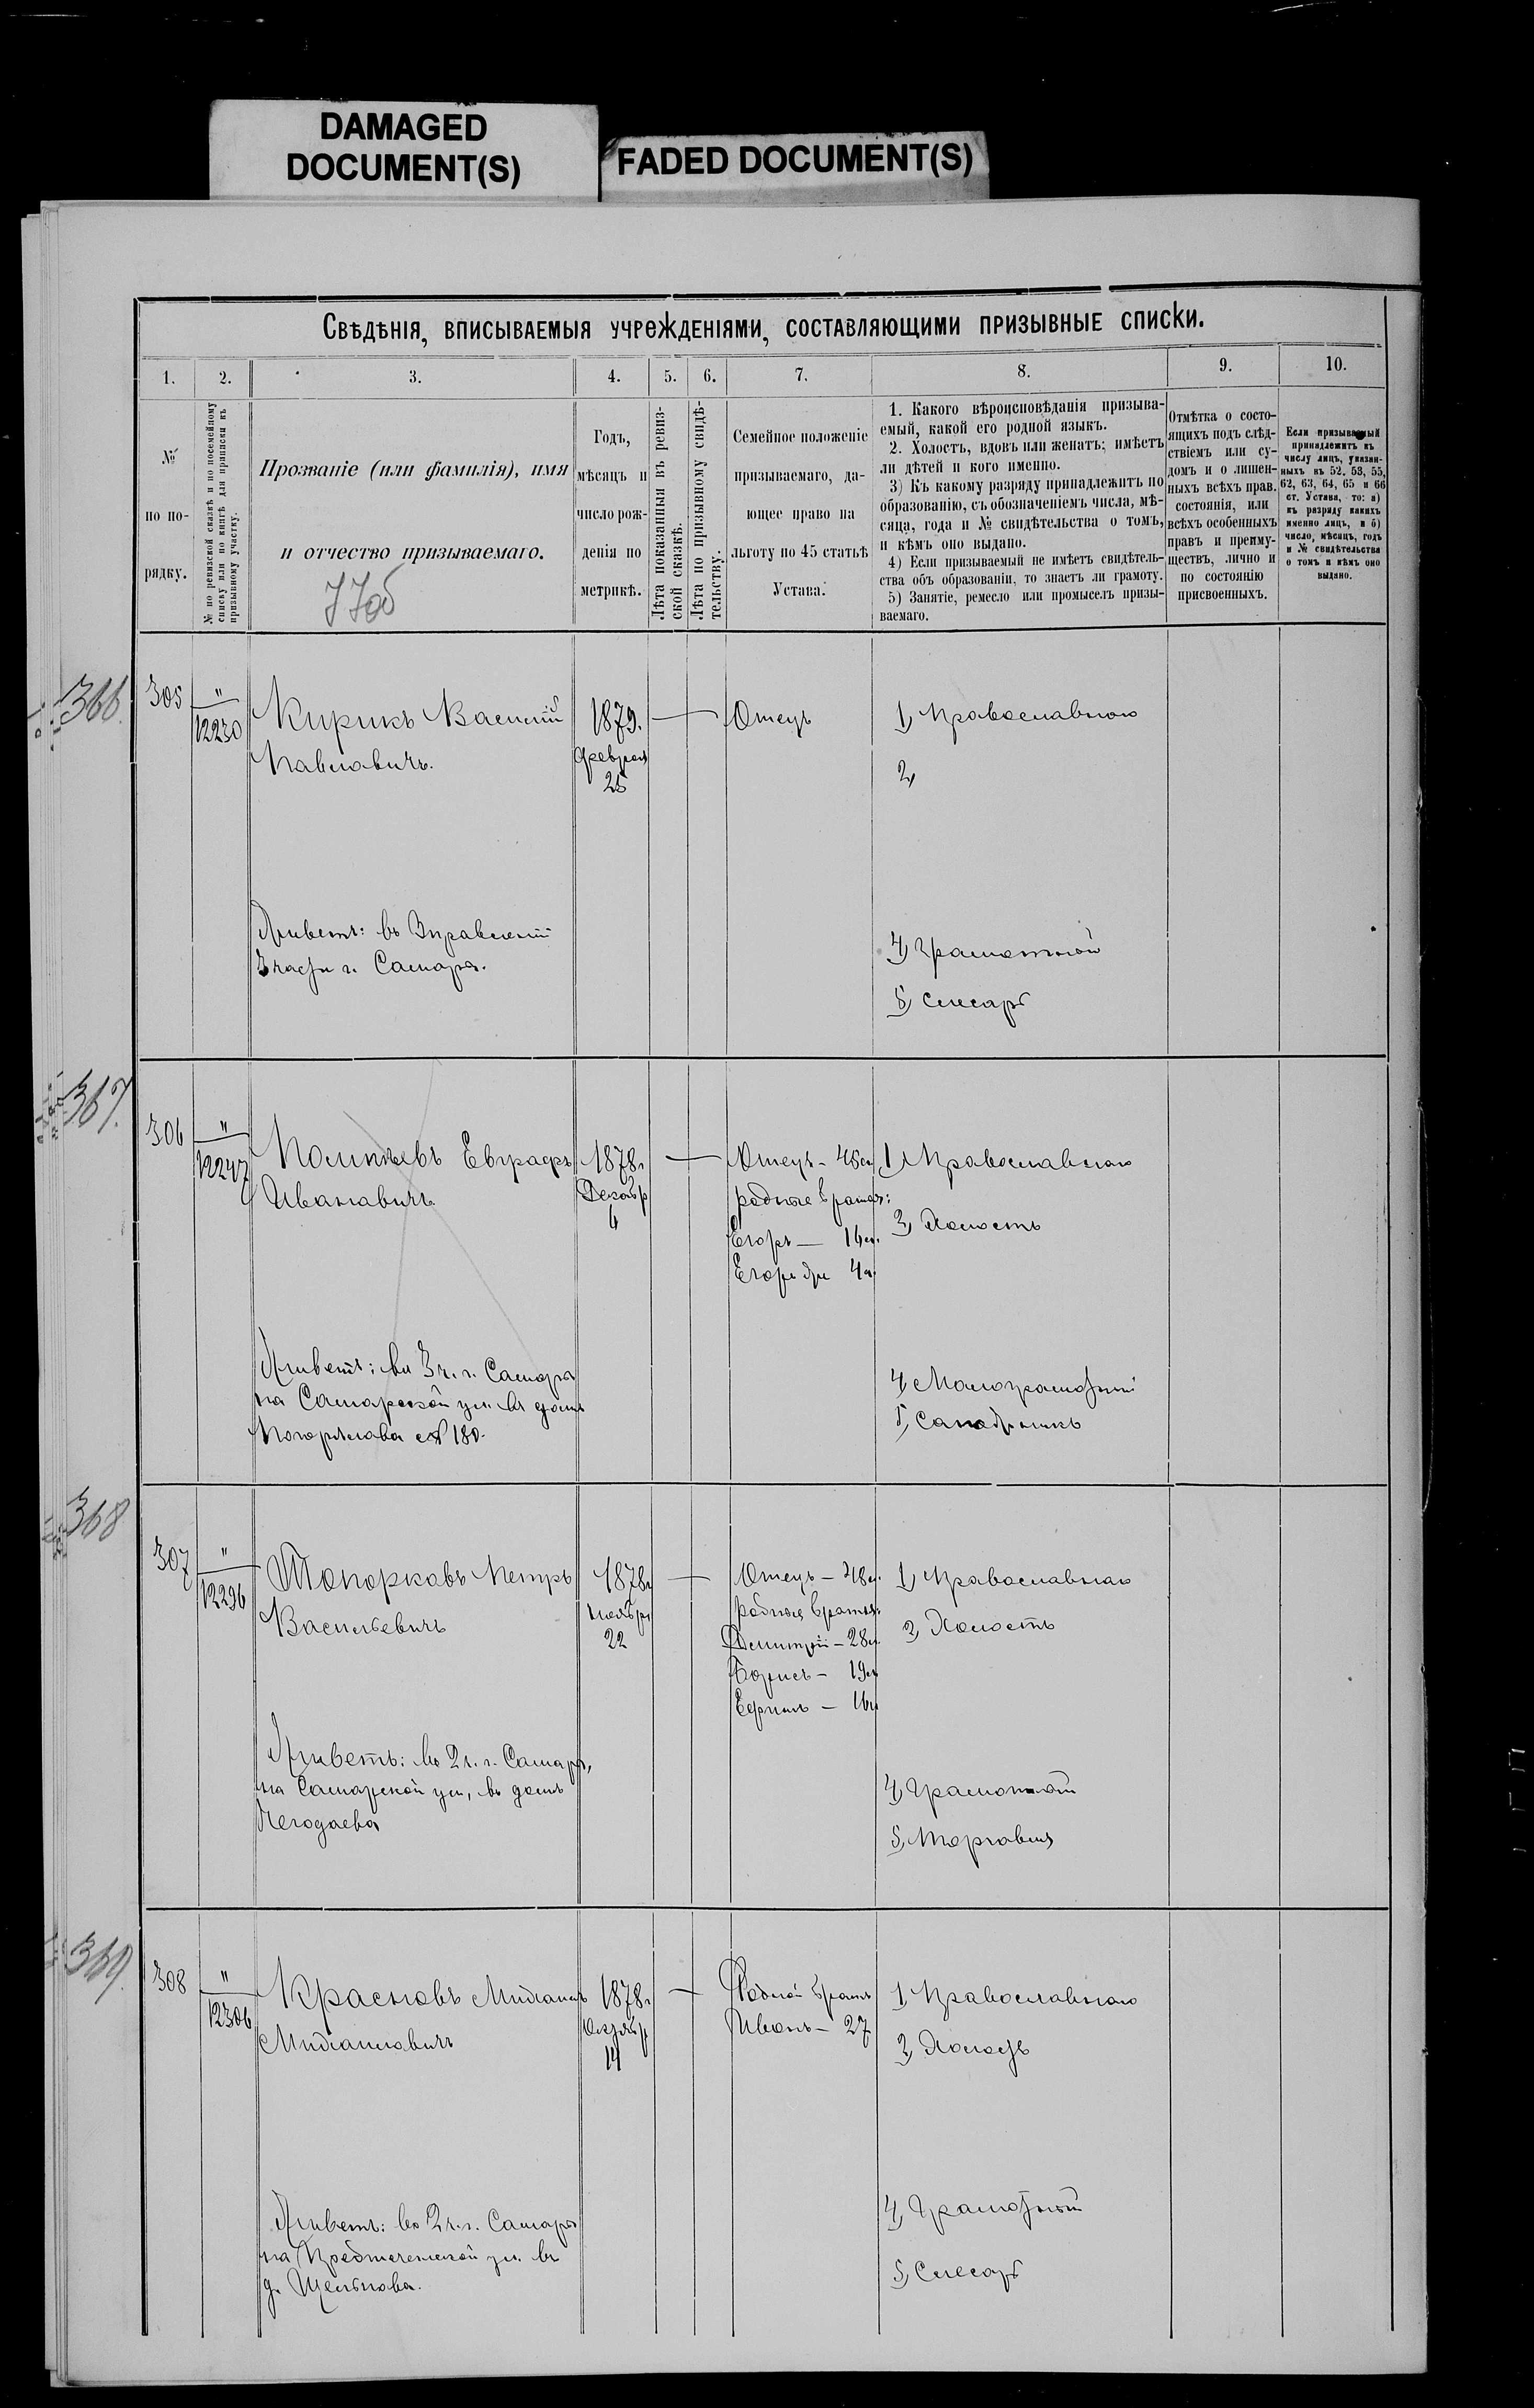 DAMAGED
DOCUMENT(S)
FADED DOCUMENT(S)
Свѣдѣнія, вписываемыя учрежденіями, составляющими призывные списки.
1.
2.
3.
4.
5.
6.
7.
8.
9.
10.
№
по по-
рядку.
№ по ревизской сказкѣ и по посемейному
списку или по книгѣ для приписки къ
призывному участку.
Прозваніе (или фамилія), имя
и отчество призываемаго.
Годъ,
мѣсяцъ и
число рож-
денія по
метрикѣ.
Лѣта показанныя въ ревиз-
ской сказкѣ.
Лѣта по призывному свидѣ-
тельству.
Семейное положеніе
призываемаго, да-
ющее право на
льготу по 45 статьѣ
Устава.
1. Какого вѣроисповѣданія призыва-
емый, какой его родной языкъ.
2. Холостъ, вдовъ или женатъ; имѣетъ
ли дѣтей и кого именно.
3) Къ какому разряду принадлежитъ по
образованію, съ обозначеніемъ числа, мѣ-
сяца, года и № свидѣтельства о томъ,
и кѣмъ оно выдано.
4) Если призываемый не имѣетъ свидѣтель-
ства объ образованіи, то знаетъ ли грамоту.
5) Занятіе, ремесло или промыселъ призы-
ваемаго.
Отмѣтка о состо-
ящихъ подъ слѣд-
ствіемъ или су-
домъ и о лишен-
ныхъ всѣхъ прав.
состоянія, или
всѣхъ особенныхъ
правъ и преиму-
ществъ, лично и
по состоянію
присвоенныхъ.
Если призываемый
принадлежитъ къ
числу лицъ, указан-
ныхъ въ 52, 53, 55,
62, 63, 64, 65 и 66
ст. Устава, то: а)
къ разряду какихъ
именно лицъ, и б)
число, мѣсяцъ, годъ
и № свидѣтельства
о томъ и кѣмъ оно
выдано.
366.
305
"
12230
Кирикъ Василій
Павловичъ.
1879.
Февраля
25
Отецъ
1) Православнаго
2)
Живетъ: въ
3 части г. Самара.
4) Грамотной
5) Слесарь
367.
306
"
12247
Евграфъ
Ивановичъ
1878г
Декабр
6
Отецъ - 45л
родные братья:
Егоръ — 14л.
Егоръ др 4л.
1) Православнаго
2) Холостъ
Живетъ: въ 3 ч. г. Самара
на Самарской ул. въ домѣ
№ 180.
4) Малограмотный
5) Сападжникъ
368
307
"
12296
Топорковъ Петръ
Васильевичъ
1878г
Ноябр
22
Отецъ - 48л.
родные братья:
Дмитрій - 28л.
Борисъ - 19л
Ефимъ - 16л
1) Православнаго
2) Холостъ
Живетъ: во 2 ч. г. Самары,
на Самарской ул, въ домѣ
Чегодаева
4) Грамотной
5) Торговля
369.
308
"
12306
Красновъ Михаилъ
Михаиловичъ
1878г
Октябр
14
Родной братъ
Иванъ - 27
1) Православнаго
2) Холостъ
Живетъ: во 2 ч. г. Самары
на Предтеченской ул. въ
д. Щелокова.
4) Грамотной
5) Слесарь